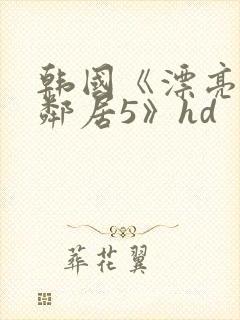 韩国《漂亮
邻居5》hd
葬花翼